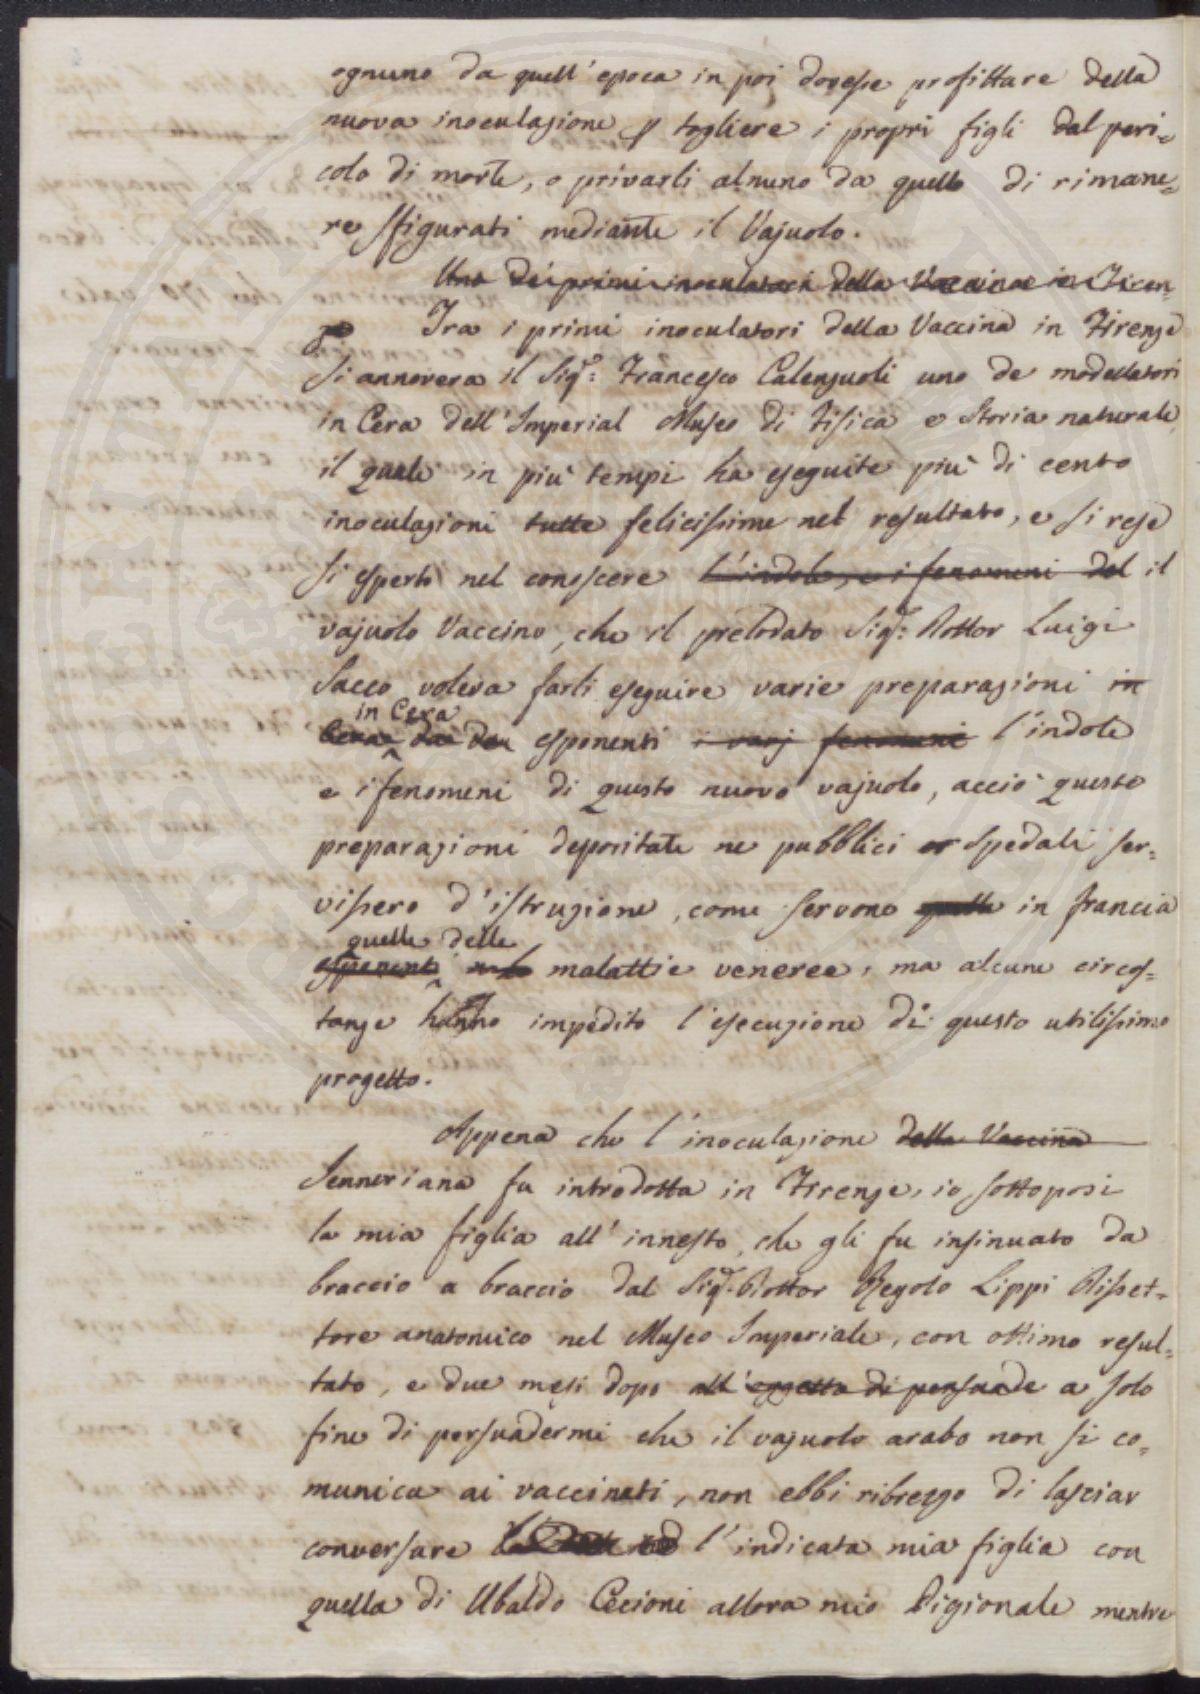 ognuno da quell'epoca in poi dovesse profittare della
nuova inoculazione p togliere i propri figli dal peri=
colo di morte, o privarli almeno da quello di rimane=
re sfigurati mediante il Vajuolo.
Uno dei primi inoculatori della Vaccina in Firen=
ze Fra i primi inoculatori della Vaccina in Firenze
si annovera il Sig.r Francesco Calenzuoli uno de modellatori
in Cera dell'Imperial Museo di Fisica e Storia naturale
il quale in più tempi ha eseguite più di cento
inoculazioni tutte felicissime nel resultato, e si rese
si esperto nel conoscere l'indole, e i fenomeni del il
vajuolo Vaccino, che il prelodato Sig.r Dottor Luigi
Sacco voleva farli eseguire varie preparazioni in
in Cera
Cera esponenti i varj fenomeni l'indole
e i fenomeni di questo nuovo vajuolo, acciò queste
preparazioni depositate ne pubblici or Spedali ser=
vissero d'istruzione, come servono quelle in francia
quelle delle
esponenti malattie veneree, ma alcune circos=
tanze hanno impedito l'esecuzione di questo utilissimo
progetto.
Appena che l'inoculazione della Vaccina
Jenneriana fu introdotta in Firenze, io sottoposi
la mia figlia all'innesto, che gli fu insinuato da
braccio a braccio dal Sig.r Dottor Regolo Lippi Disset=
tore anatomico nel Museo Imperiale, con ottimo resul=
tato, e due mesi dopo all'oggetto di persuade a solo
fine di persuadermi che il vajuolo arabo non si co=
munica ai vaccinati, non ebbi ribrezzo di lasciar
conversare l'indicata mia figlia con
quella di Ubaldo Cecioni allora mio Pigionale mentre